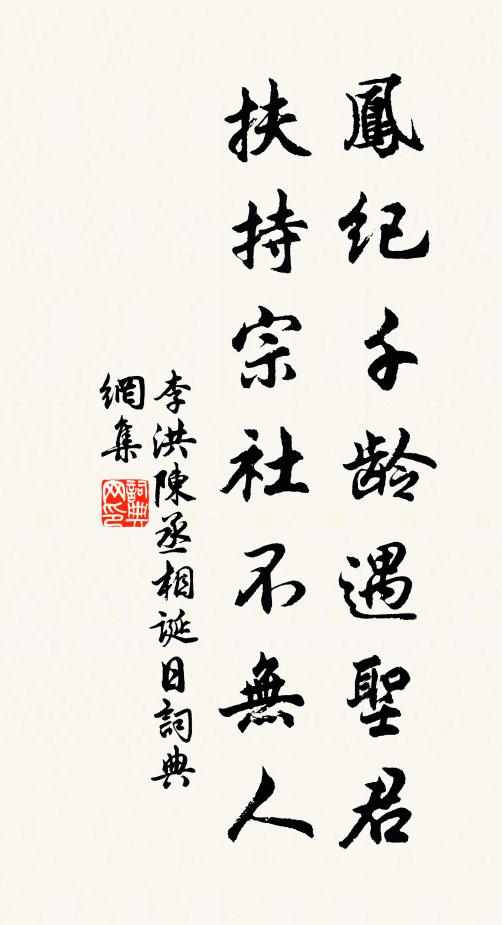 鳳紀千龄遇聖君
扶持宗社不無人
李洪陳丞相誕日詞典
網集
詞典
网印